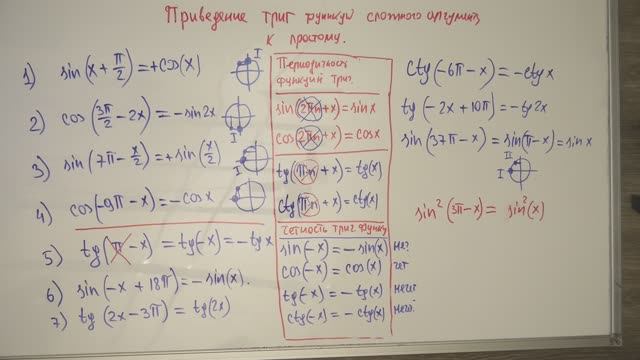 Приведение триг функций сложного аргумента
к простому.
1) sin(x + π/2) = +cos(x) I
2) cos(3π/2 − 2x) = −sin2x
3) sin(7π − x/2) = +sin(x/2) II
4) cos(−9π − x) = −cosx
5) tg(π − x) = tg(−x) = −tgx
6) sin(−x + 18π) = −sin(x).
7) tg(2x − 3π) = tg(2x)
Периодичность
функций триг.
sin(2πn + x) = sinx
cos(2πn + x) = cosx
tg(πn + x) = tg(x)
ctg(πn + x) = ctg(x)
Четность триг функц
sin(−x) = −sin(x)
cos(−x) = cos(x) чет
tg(−x) = −tg(x) нечет
ctg(−x) = −ctg(x) нечет
ctg(−6π − x) = −ctgx
tg(−2x + 10π) = −tg2x
sin(37π − x) = sin(π − x) = sinx
II
sin²(3π − x) = sin²(x)